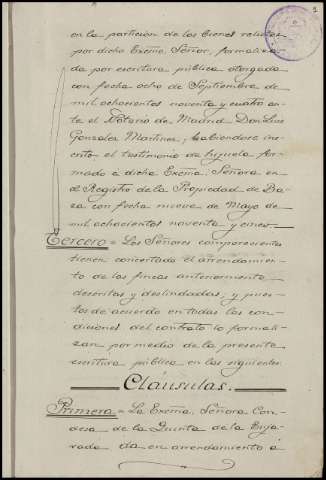 en la particion de los bienes relictos
por dicho Excmo. Señor, formaliza-
da por escritura pública otorgada
con fecha ocho de Septiembre de
mil ochocientos noventa y cuatro an-
te el Notario de Madrid Don Luis
Gonzalez Martinez; habiendose ins-
crito el testimonio de hijuela for-
mado á dicha Excma. Señora en
el Registro de la Propiedad de Ba-
za con fecha nueve de Mayo de
mil ochocientos noventa y cinco.
Tercero = Los Señores comparecientes
tienen concertado el arrendamien-
to de las fincas anteriormente
descritas y deslindadas; y pues-
tos de acuerdo en todas las con-
diciones del contrato lo formali-
zan por medio de la presente
escritura pública en las siguientes
Cláusulas.
Primera = La Excma. Señora Con-
desa de la Quinta de la Enja-
rada da en arrendamiento á